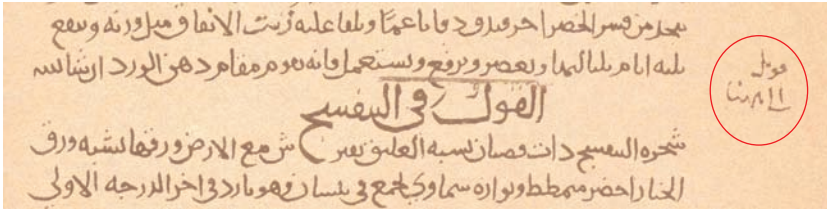 من قشر الاخضر ويدق دقا ناعما ويلقا عليه زيت الانفاق مثل وزنه وينقع
ثلثه ايام بلياليها ويعصر ويرفع ويستعمل فانه يقوم مقام دهن الورد ان شا الله
قوبل
الي هنا
القول في البنفسج
شجره البنفسج ذات قضبان تشبه العليق تفترش مع الارض ورقها يشبه ورق
الخيار اخضر ونواره سماوي يجمع في نيسان وهو بارد في اخر الدرجه الاولي